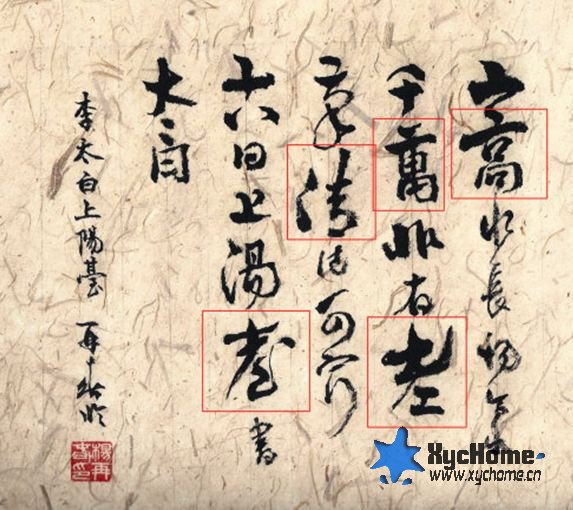 山高水長物象
千萬非有老
筆清壯可窮
十八日上陽臺書
太白
李太白上陽臺 再春臨
楊再春印
XycHome
www.xychome.cn